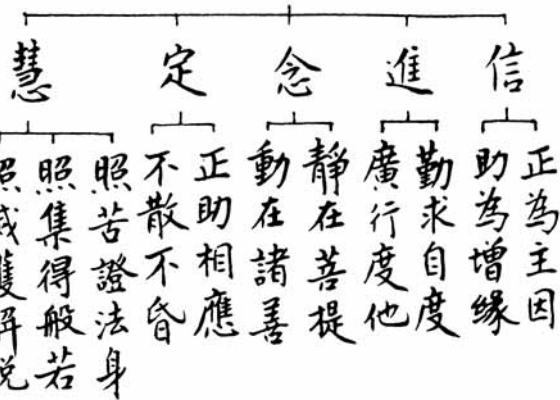 信
進
念
定
慧
正為主因
助為增緣
勤求自度
廣行度他
靜在菩提
動在諸善
正助相應
不散不昏
照苦證法身
照集得般若
照滅獲解脫